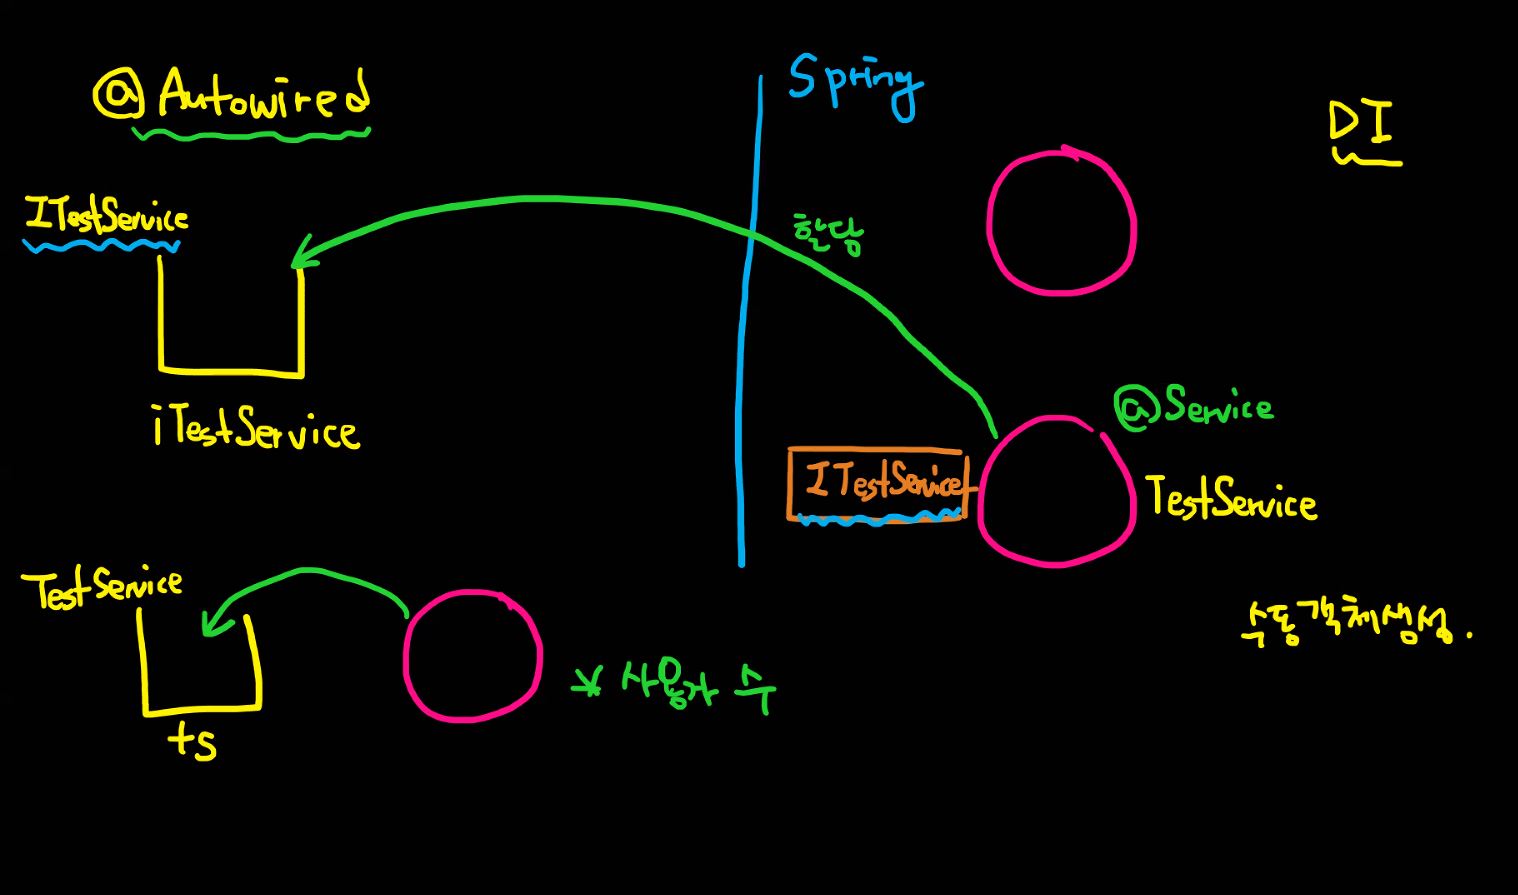 @Autowired
Spring
DI
ITestService
할당
iTestService
@Service
ITestService
TestService
TestService
수동객체생성.
* 사용자 수
ts